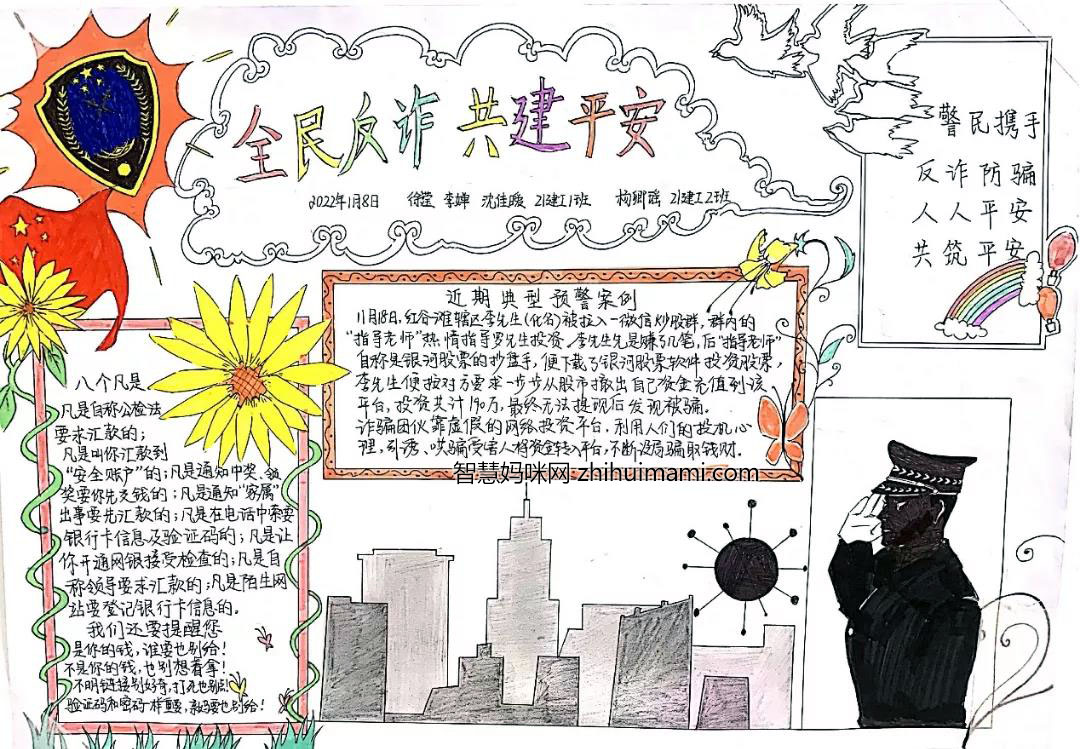 全民反诈 共建平安
2022年1月8日 徐莹 李婵 沈佳暖 21建工1班 杨卿瑶 21建工2班
警民携手
反诈防骗
人人平安
共筑平安
近期典型预警案例
11月18日,红谷滩辖区李先生(化名)被拉入一微信炒股群,群内的
"指导老师"热情指导罗先生投资,李先生先是赚了几笔,后"指导老师"
自称是银河股票的抄盘手,便下载了银河股票软件投资股票,
李先生便按对方要求一步步从股市撤出自己资金充值到该
平台,投资共计190万,最终无法提现后发现被骗。
诈骗团伙靠虚假的网络投资平台,利用人们的投机心
理,引诱、哄骗受害人将资金转入平台,不断设局骗取钱财.
智慧妈咪网:zhihuimami.com
八个凡是
凡是自称公检法
要求汇款的;
凡是叫你汇款到
"安全账户"的;凡是通知中奖、领
奖要你先交钱的;凡是通知"家属"
出事要先汇款的;凡是在电话中索要
银行卡信息及验证码的;凡是让
你开通网银接受检查的;凡是自
称领导要求汇款的;凡是陌生网
站要登记银行卡信息的.
我们还要提醒您
是你的钱,谁要也别给!
不是你的钱,也别想着拿!
不明链接别好奇,打死也别点!
验证码和密码一样重要,亲妈要也别给!